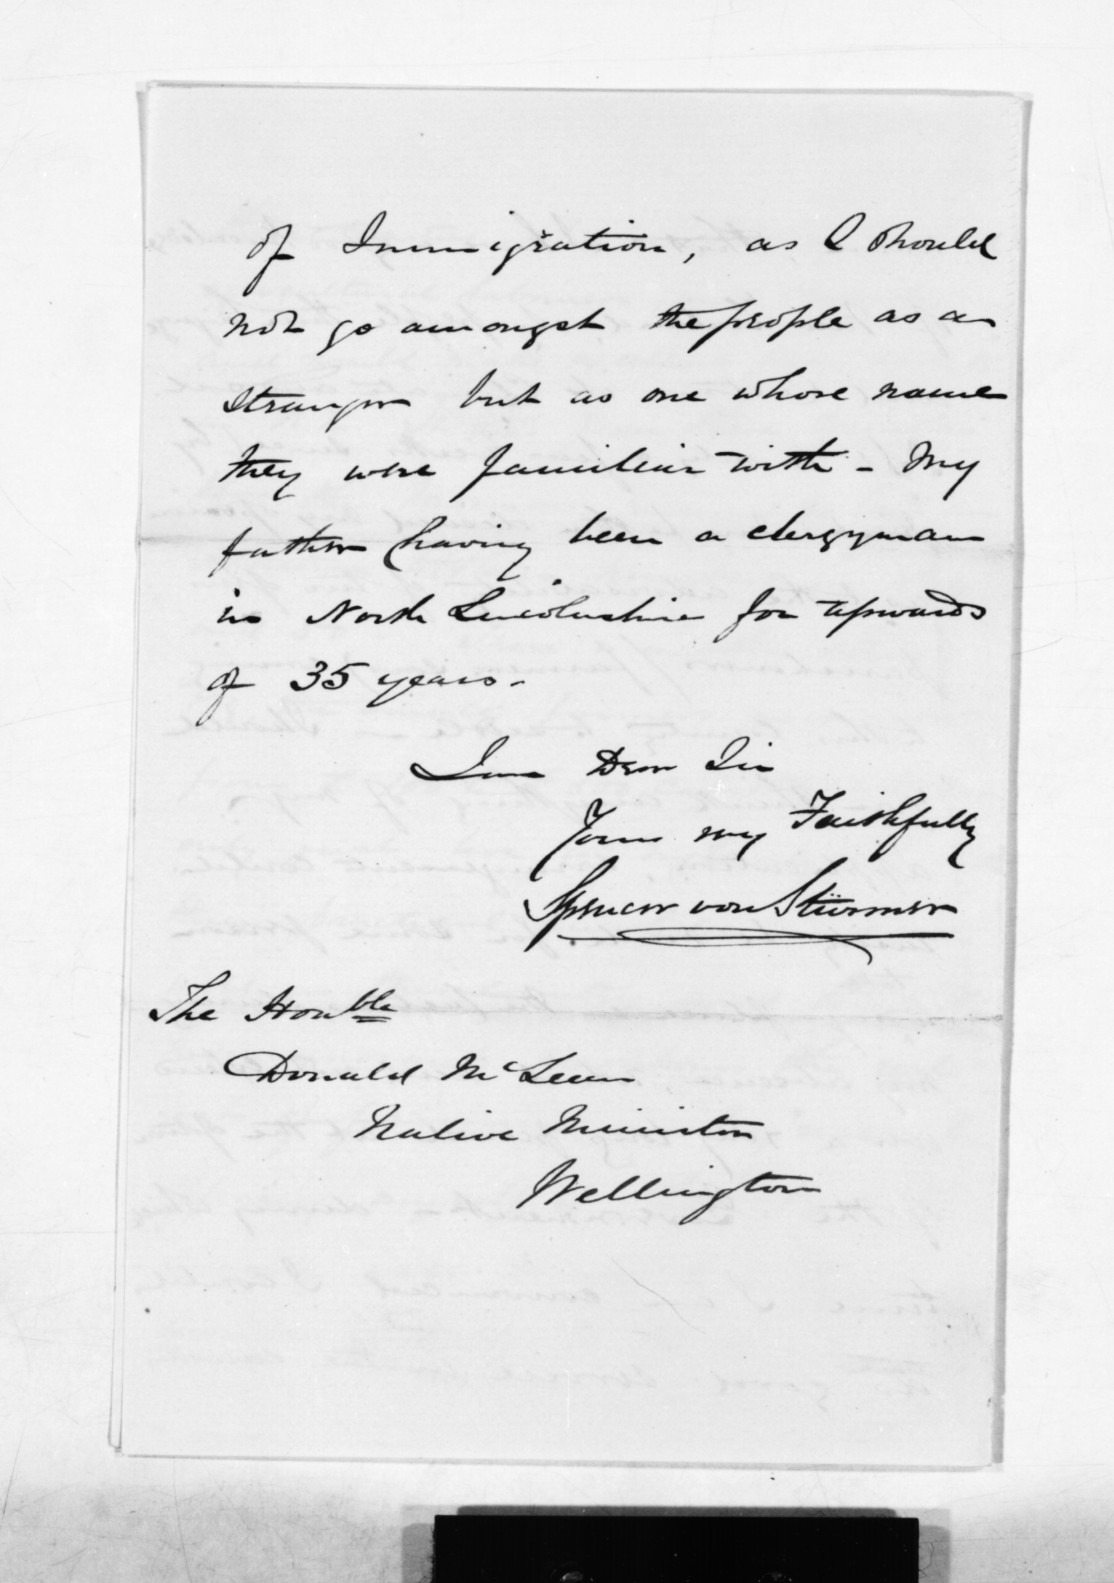 of Immigration, as I should
not go amongst the people as a
stranger but as one whose name
they were familiar with - My
father having been a clergyman
in North Lincolnshire for upwards
of 35 years -
I am Dear Sir
Yours very Faithfully
Spencer von Stürmer
The Honble
Donald McLean
Native Minister
Wellington